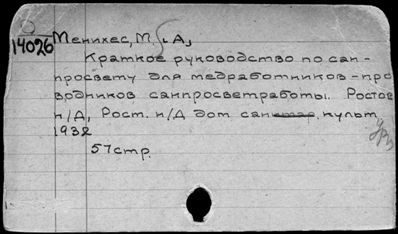 14026 Менихес, М. А.,
Краткое руководство по сан-
просвету для медработников - про
водников санпросветработы. Ростов
н/Д, Рост. н/Д дом сан культ
1932
57 стр.